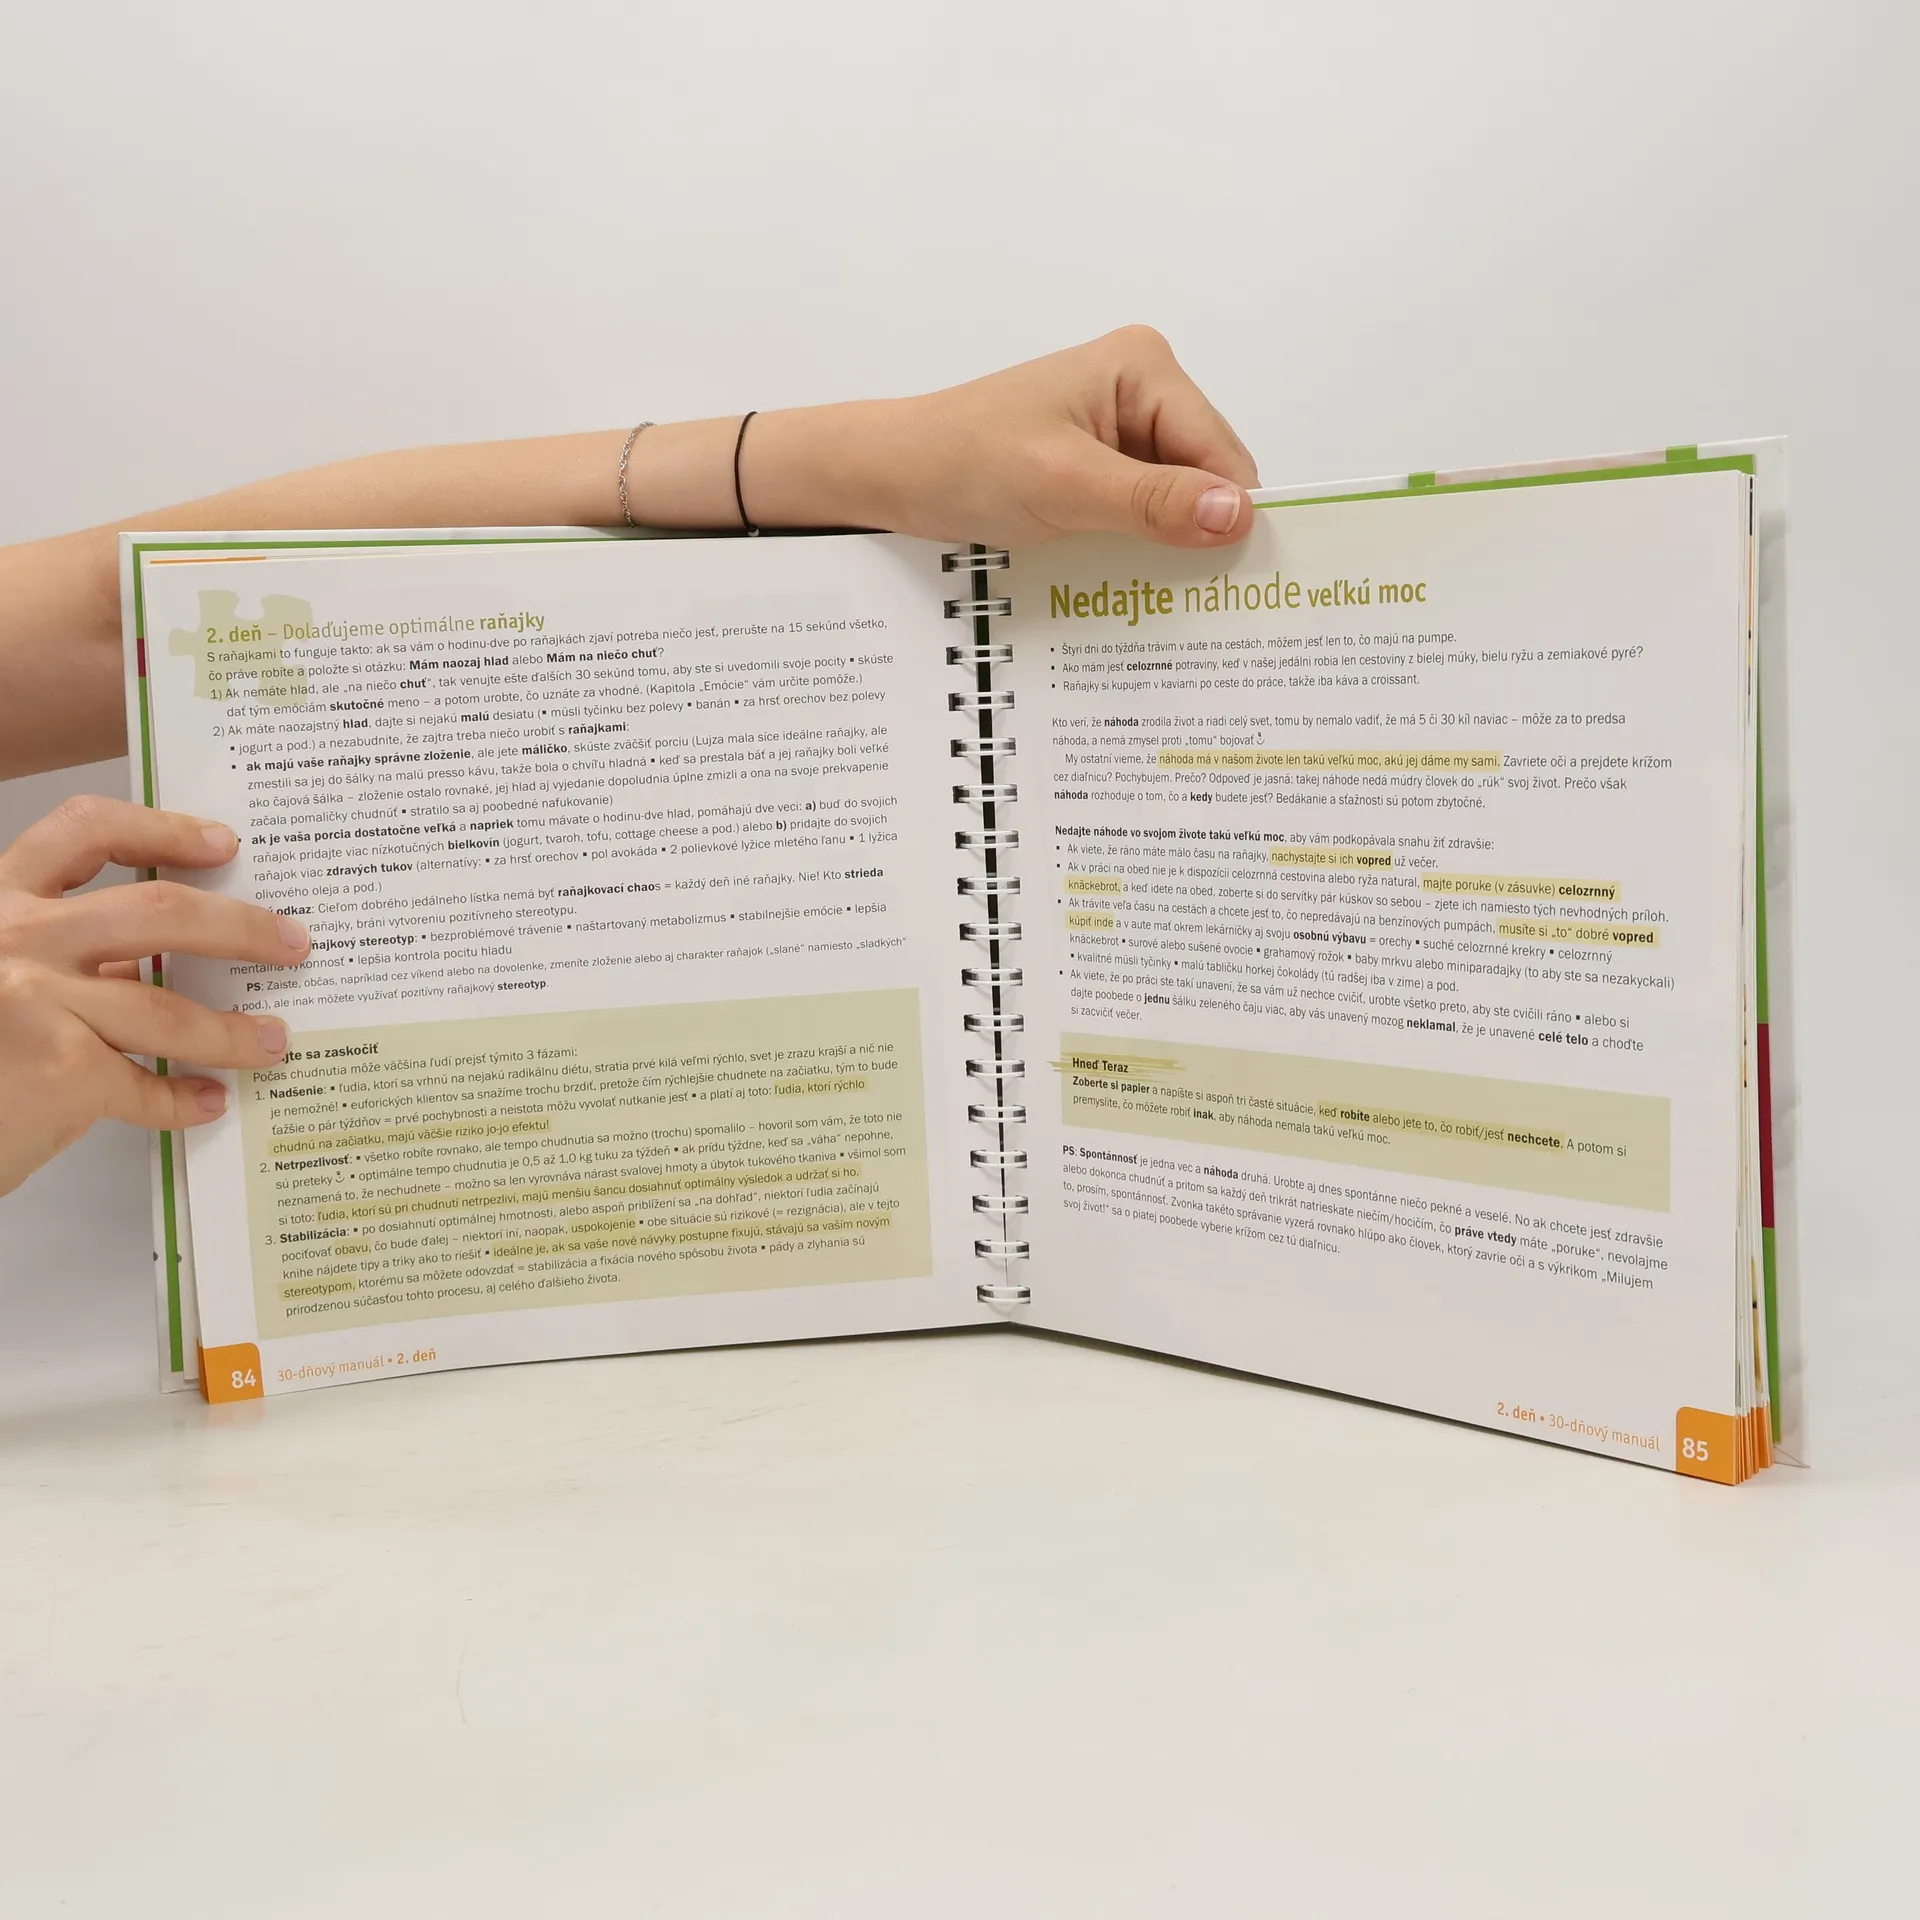 2. deň – Dolaďujeme optimálne raňajky
S raňajkami to funguje takto: ak sa vám o hodinu-dve po raňajkách zjaví potreba niečo jesť, prerušte na 15 sekúnd všetko,
čo práve robíte a položte si otázku: Mám naozaj hlad alebo Mám na niečo chuť?
1) Ak nemáte hlad, ale „na niečo chuť“, tak venujte ešte ďalších 30 sekúnd tomu, aby ste si uvedomili svoje pocity ▪ skúste
dať tým emóciám skutočné meno – a potom urobte, čo uznáte za vhodné. (Kapitola „Emócie“ vám určite pomôže.)
2) Ak máte naozajstný hlad, dajte si nejakú malú desiatu (▪ müsli tyčinku bez polevy ▪ banán ▪ za hrsť orechov bez polevy
▪ jogurt a pod.) a nezabudnite, že zajtra treba niečo urobiť s raňajkami:
▪ ak majú vaše raňajky správne zloženie, ale jete máličko, skúste zväčšiť porciu (Lujza mala síce ideálne raňajky, ale
zmestili sa jej do šálky na malú presso kávu, takže bola o chvíľu hladná ▪ keď sa prestala báť a jej raňajky boli veľké
ako čajová šálka – zloženie ostalo rovnaké, jej hlad aj vyjedanie dopoludnia úplne zmizli a ona na svoje prekvapenie
začala pomaličky chudnúť ▪ stratilo sa aj poobedné nafukovanie)
▪ ak je vaša porcia dostatočne veľká a napriek tomu mávate o hodinu-dve hlad, pomáhajú dve veci: a) buď do svojich
raňajok pridajte viac nízkotučných bielkovín (jogurt, tvaroh, tofu, cottage cheese a pod.) alebo b) pridajte do svojich
raňajok viac zdravých tukov (alternatívy: ▪ za hrsť orechov ▪ pol avokáda ▪ 2 polievkové lyžice mletého ľanu ▪ 1 lyžica
olivového oleja a pod.)
odkaz: Cieľom dobrého jedálneho lístka nemá byť raňajkovací chaos = každý deň iné raňajky. Nie! Kto strieda
raňajky, bráni vytvoreniu pozitívneho stereotypu.
ňajkový stereotyp: ▪ bezproblémové trávenie ▪ naštartovaný metabolizmus ▪ stabilnejšie emócie ▪ lepšia
mentálna výkonnosť ▪ lepšia kontrola pocitu hladu
PS: Zaiste, občas, napríklad cez víkend alebo na dovolenke, zmeníte zloženie alebo aj charakter raňajok („slané“ namiesto „sladkých“
a pod.), ale inak môžete využívať pozitívny raňajkový stereotyp.
jte sa zaskočiť
Počas chudnutia môže väčšina ľudí prejsť týmito 3 fázami:
1. Nadšenie: ▪ ľudia, ktorí sa vrhnú na nejakú radikálnu diétu, stratia prvé kilá veľmi rýchlo, svet je zrazu krajší a nič nie
je nemožné! ▪ euforických klientov sa snažíme trochu brzdiť, pretože čím rýchlejšie chudnete na začiatku, tým to bude
ťažšie o pár týždňov = prvé pochybnosti a neistota môžu vyvolať nutkanie jesť ▪ a platí aj toto: ľudia, ktorí rýchlo
chudnú na začiatku, majú väčšie riziko jo-jo efektu!
2. Netrpezlivosť: ▪ všetko robíte rovnako, ale tempo chudnutia sa možno (trochu) spomalilo – hovoril som vám, že toto nie
sú preteky ▪ optimálne tempo chudnutia je 0,5 až 1,0 kg tuku za týždeň ▪ ak prídu týždne, keď sa „váha“ nepohne,
neznamená to, že nechudnete – možno sa len vyrovnáva nárast svalovej hmoty a úbytok tukového tkaniva ▪ všimol som
si toto: ľudia, ktorí sú pri chudnutí netrpezliví, majú menšiu šancu dosiahnuť optimálny výsledok a udržať si ho.
3. Stabilizácia: ▪ po dosiahnutí optimálnej hmotnosti, alebo aspoň priblížení sa „na dohľad“, niektorí ľudia začínajú
pociťovať obavu, čo bude ďalej – niektorí iní, naopak, uspokojenie ▪ obe situácie sú rizikové (= rezignácia), ale v tejto
knihe nájdete tipy a triky ako to riešiť ▪ ideálne je, ak sa vaše nové návyky postupne fixujú, stávajú sa vaším novým
stereotypom, ktorému sa môžete odovzdať = stabilizácia a fixácia nového spôsobu života ▪ pády a zlyhania sú
prirodzenou súčasťou tohto procesu, aj celého ďalšieho života.
84 30-dňový manuál ▪ 2. deň
Nedajte náhode veľkú moc
▪ Štyri dni do týždňa trávim v aute na cestách, môžem jesť len to, čo majú na pumpe.
▪ Ako mám jesť celozrnné potraviny, keď v našej jedálni robia len cestoviny z bielej múky, bielu ryžu a zemiakové pyré?
▪ Raňajky si kupujem v kaviarni po ceste do práce, takže iba káva a croissant.
Kto verí, že náhoda zrodila život a riadi celý svet, tomu by nemalo vadiť, že má 5 či 30 kíl naviac – môže za to predsa
náhoda, a nemá zmysel proti „tomu“ bojovať
My ostatní vieme, že náhoda má v našom živote len takú veľkú moc, akú jej dáme my sami. Zavriete oči a prejdete krížom
cez diaľnicu? Pochybujem. Prečo? Odpoveď je jasná: takej náhode nedá múdry človek do „rúk“ svoj život. Prečo však
náhoda rozhoduje o tom, čo a kedy budete jesť? Bedákanie a sťažnosti sú potom zbytočné.
Nedajte náhode vo svojom živote takú veľkú moc, aby vám podkopávala snahu žiť zdravšie:
▪ Ak viete, že ráno máte málo času na raňajky, nachystajte si ich vopred už večer.
▪ Ak v práci na obed nie je k dispozícii celozrnná cestovina alebo ryža natural, majte poruke (v zásuvke) celozrnný
knäckebrot, a keď idete na obed, zoberte si do servítky pár kúskov so sebou – zjete ich namiesto tých nevhodných príloh.
▪ Ak trávite veľa času na cestách a chcete jesť to, čo nepredávajú na benzínových pumpách, musíte si „to“ dobré vopred
kúpiť inde a v aute mať okrem lekárničky aj svoju osobnú výbavu = orechy ▪ suché celozrnné krekry ▪ celozrnný
knäckebrot ▪ surové alebo sušené ovocie ▪ grahamový rožok ▪ baby mrkvu alebo miniparadajky (to aby ste sa nezakyckali)
▪ kvalitné müsli tyčinky ▪ malú tabličku horkej čokolády (tú radšej iba v zime) a pod.
▪ Ak viete, že po práci ste takí unavení, že sa vám už nechce cvičiť, urobte všetko preto, aby ste cvičili ráno ▪ alebo si
dajte poobede o jednu šálku zeleného čaju viac, aby vás unavený mozog neklamal, že je unavené celé telo a choďte
si zacvičiť večer.
Hneď Teraz
Zoberte si papier a napíšte si aspoň tri časté situácie, keď robíte alebo jete to, čo robiť/jesť nechcete. A potom si
premyslite, čo môžete robiť inak, aby náhoda nemala takú veľkú moc.
PS: Spontánnosť je jedna vec a náhoda druhá. Urobte aj dnes spontánne niečo pekné a veselé. No ak chcete jesť zdravšie
alebo dokonca chudnúť a pritom sa každý deň trikrát natrieskate niečím/hocičím, čo práve vtedy máte „poruke“, nevolajme
to, prosím, spontánnosť. Zvonka takéto správanie vyzerá rovnako hlúpo ako človek, ktorý zavrie oči a s výkrikom „Milujem
svoj život!“ sa o piatej poobede vyberie krížom cez tú diaľnicu.
2. deň ▪ 30-dňový manuál 85